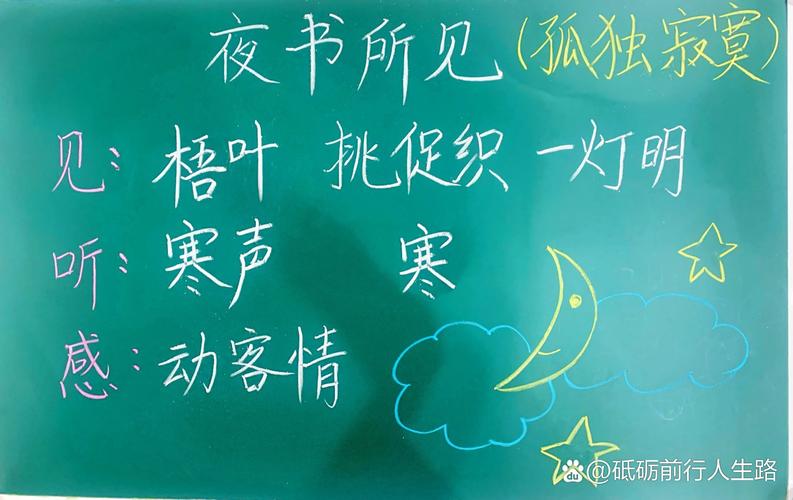 夜书所见(孤独寂寞)
见：梧叶 挑促织 一灯明
听：寒声 寒
感：动客情
du @砥砺前行人生路